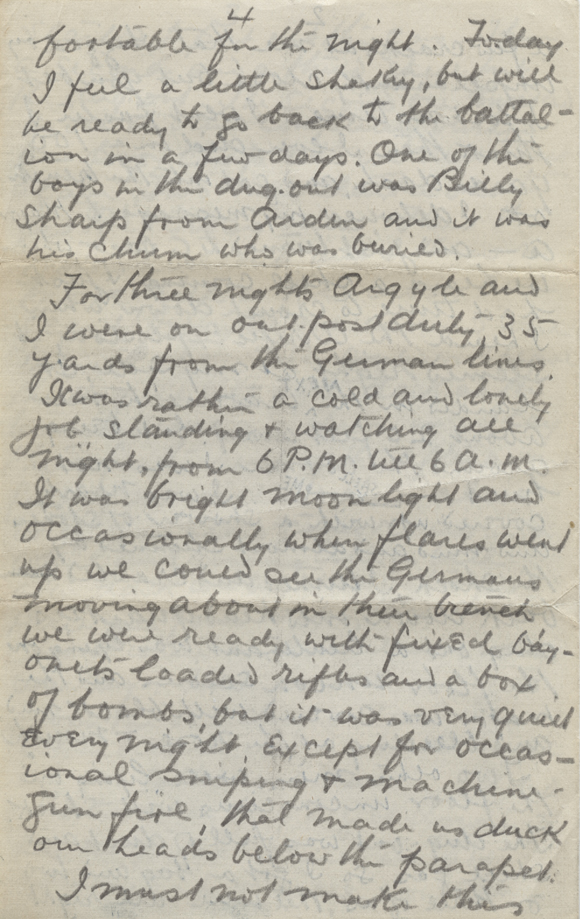 4
fortable for the night. To-day
I feel a little shaky, but will
be ready to go back to the battal-
ion in a few days. One of the
boys in the dug-out was Billy
Sharp from Arden and it was
his chum who was buried.
For three nights Argyle and
I were on out-post duty 35
yards from the German lines.
It was rather a cold and lonely
job standing & watching all
night, from 6 P.M. till 6 a.m.
It was bright moon light and
occasionally when flares went
up we could see the Germans
moving about in their trench
we were ready with fixed bay-
onets loaded rifles and a box
of bombs, but it was very quiet
every night except for occas-
ional sniping & machine-
gun fire, that made us duck
our heads below the parapet.
I must not make this